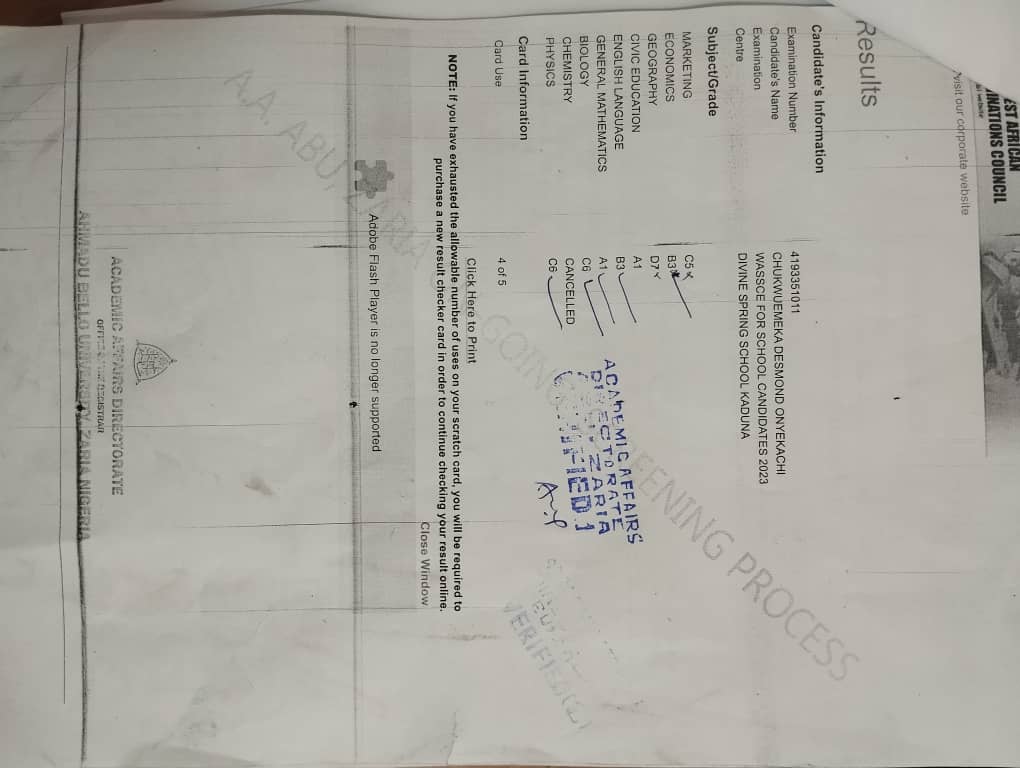 EST AFRICAN
NATIONS COUNCIL
visit our corporate website
Results
Candidate's Information
Examination Number 4193351011
Candidate's Name CHUKWUEMEKA DESMOND ONYEKACHI
Examination WASSCE FOR SCHOOL CANDIDATES 2023
Centre DIVINE SPRING SCHOOL KADUNA
Subject/Grade
MARKETING C5
ECONOMICS B3
GEOGRAPHY D7
CIVIC EDUCATION A1
ENGLISH LANGUAGE B3
GENERAL MATHEMATICS A1
BIOLOGY C6
CHEMISTRY CANCELLED
PHYSICS C6
Card Information
Card Use 4 of 5
Click Here to Print
NOTE: If you have exhausted the allowable number of uses on your scratch card, you will be required to
purchase a new result checker card in order to continue checking your result online.
Close Window
Adobe Flash Player is no longer supported
ACADEMIC AFFAIRS
DIRECTORATE
ZARIA
VERIFIED(2)
A.A. ABU, ZARIA GOING SCREENING PROCESS
ACADEMIC AFFAIRS DIRECTORATE
OFFICE OF THE REGISTRAR
AHMADU BELLO UNIVERSITY, ZARIA NIGERIA